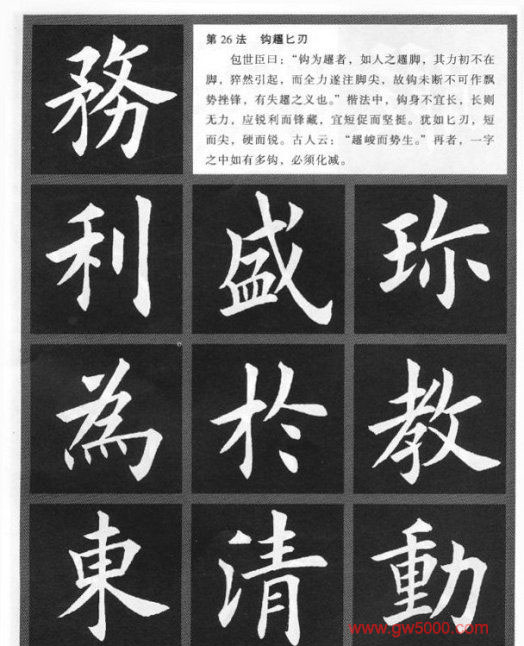 務
第26法 钩趯匕刃
包世臣曰：“钩为趯者，如人之趯脚，其力初不在
脚，猝然引起，而全力遂注脚尖，故钩未断不可作飘
势挫锋，有失趯之义也。”楷法中，钩身不宜长，长则
无力，应锐利而锋藏，宜短促而坚挺。犹如匕刃，短
而尖，硬而锐。古人云：“趯峻而势生。”再者，一字
之中如有多钩，必须化减。
利 盛 珎
為 於 教
東 清 動
www.gw5000.com